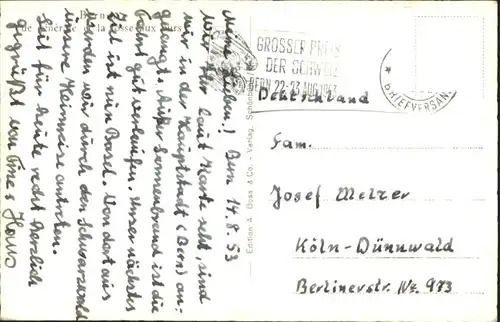 Bern
de Genève la Fosse aux Ours
Meine Lieben! Bern 14.8.53
Wie Ihr laut Karte seht, sind
wir in der Hauptstadt (Bern) an-
gelangt. Außer Sonnenbrand ist die
Fahrt gut verlaufen. Unser nächstes
Ziel ist nun Basel. Von dort aus
werden wir durch den Schwarzwald
unsere Heimreise antreten.
Seid für heute recht herzlich
gegrüßt von Eurem Hans
Edition A. Boss & Co. - Verlag, Schönb
GROSSER PREIS
DER SCHWEIZ
BERN 22-23 AUG. 1953
* BRIEFVERSAND *
Deutschland
Fam.
Josef Melzer
Köln-Dünnwald
Berlinerstr. Nr. 973